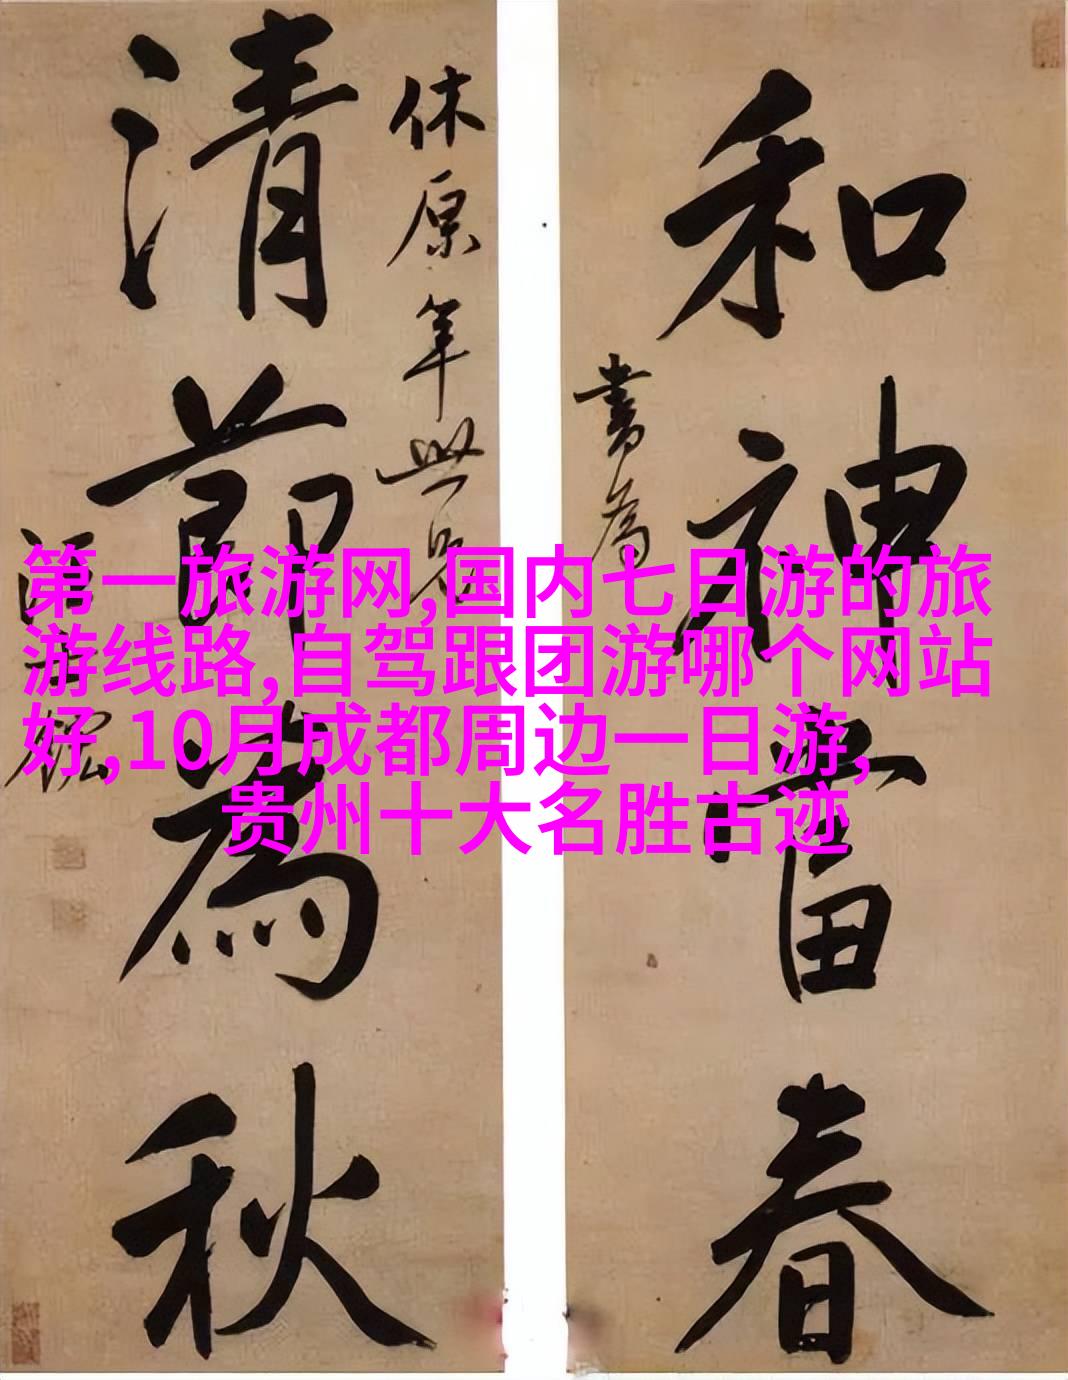 和神當春
書為
休原年世兄
清節為秋
第一旅游网,国内七日游的旅
游线路,自驾跟团游哪个网站
好,10月成都周边一日游,
贵州十大名胜古迹